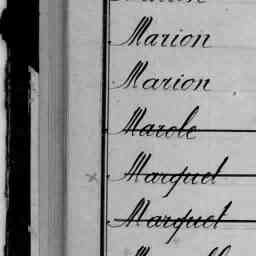 Marion
Marion
Marole
Marquet
Marquet